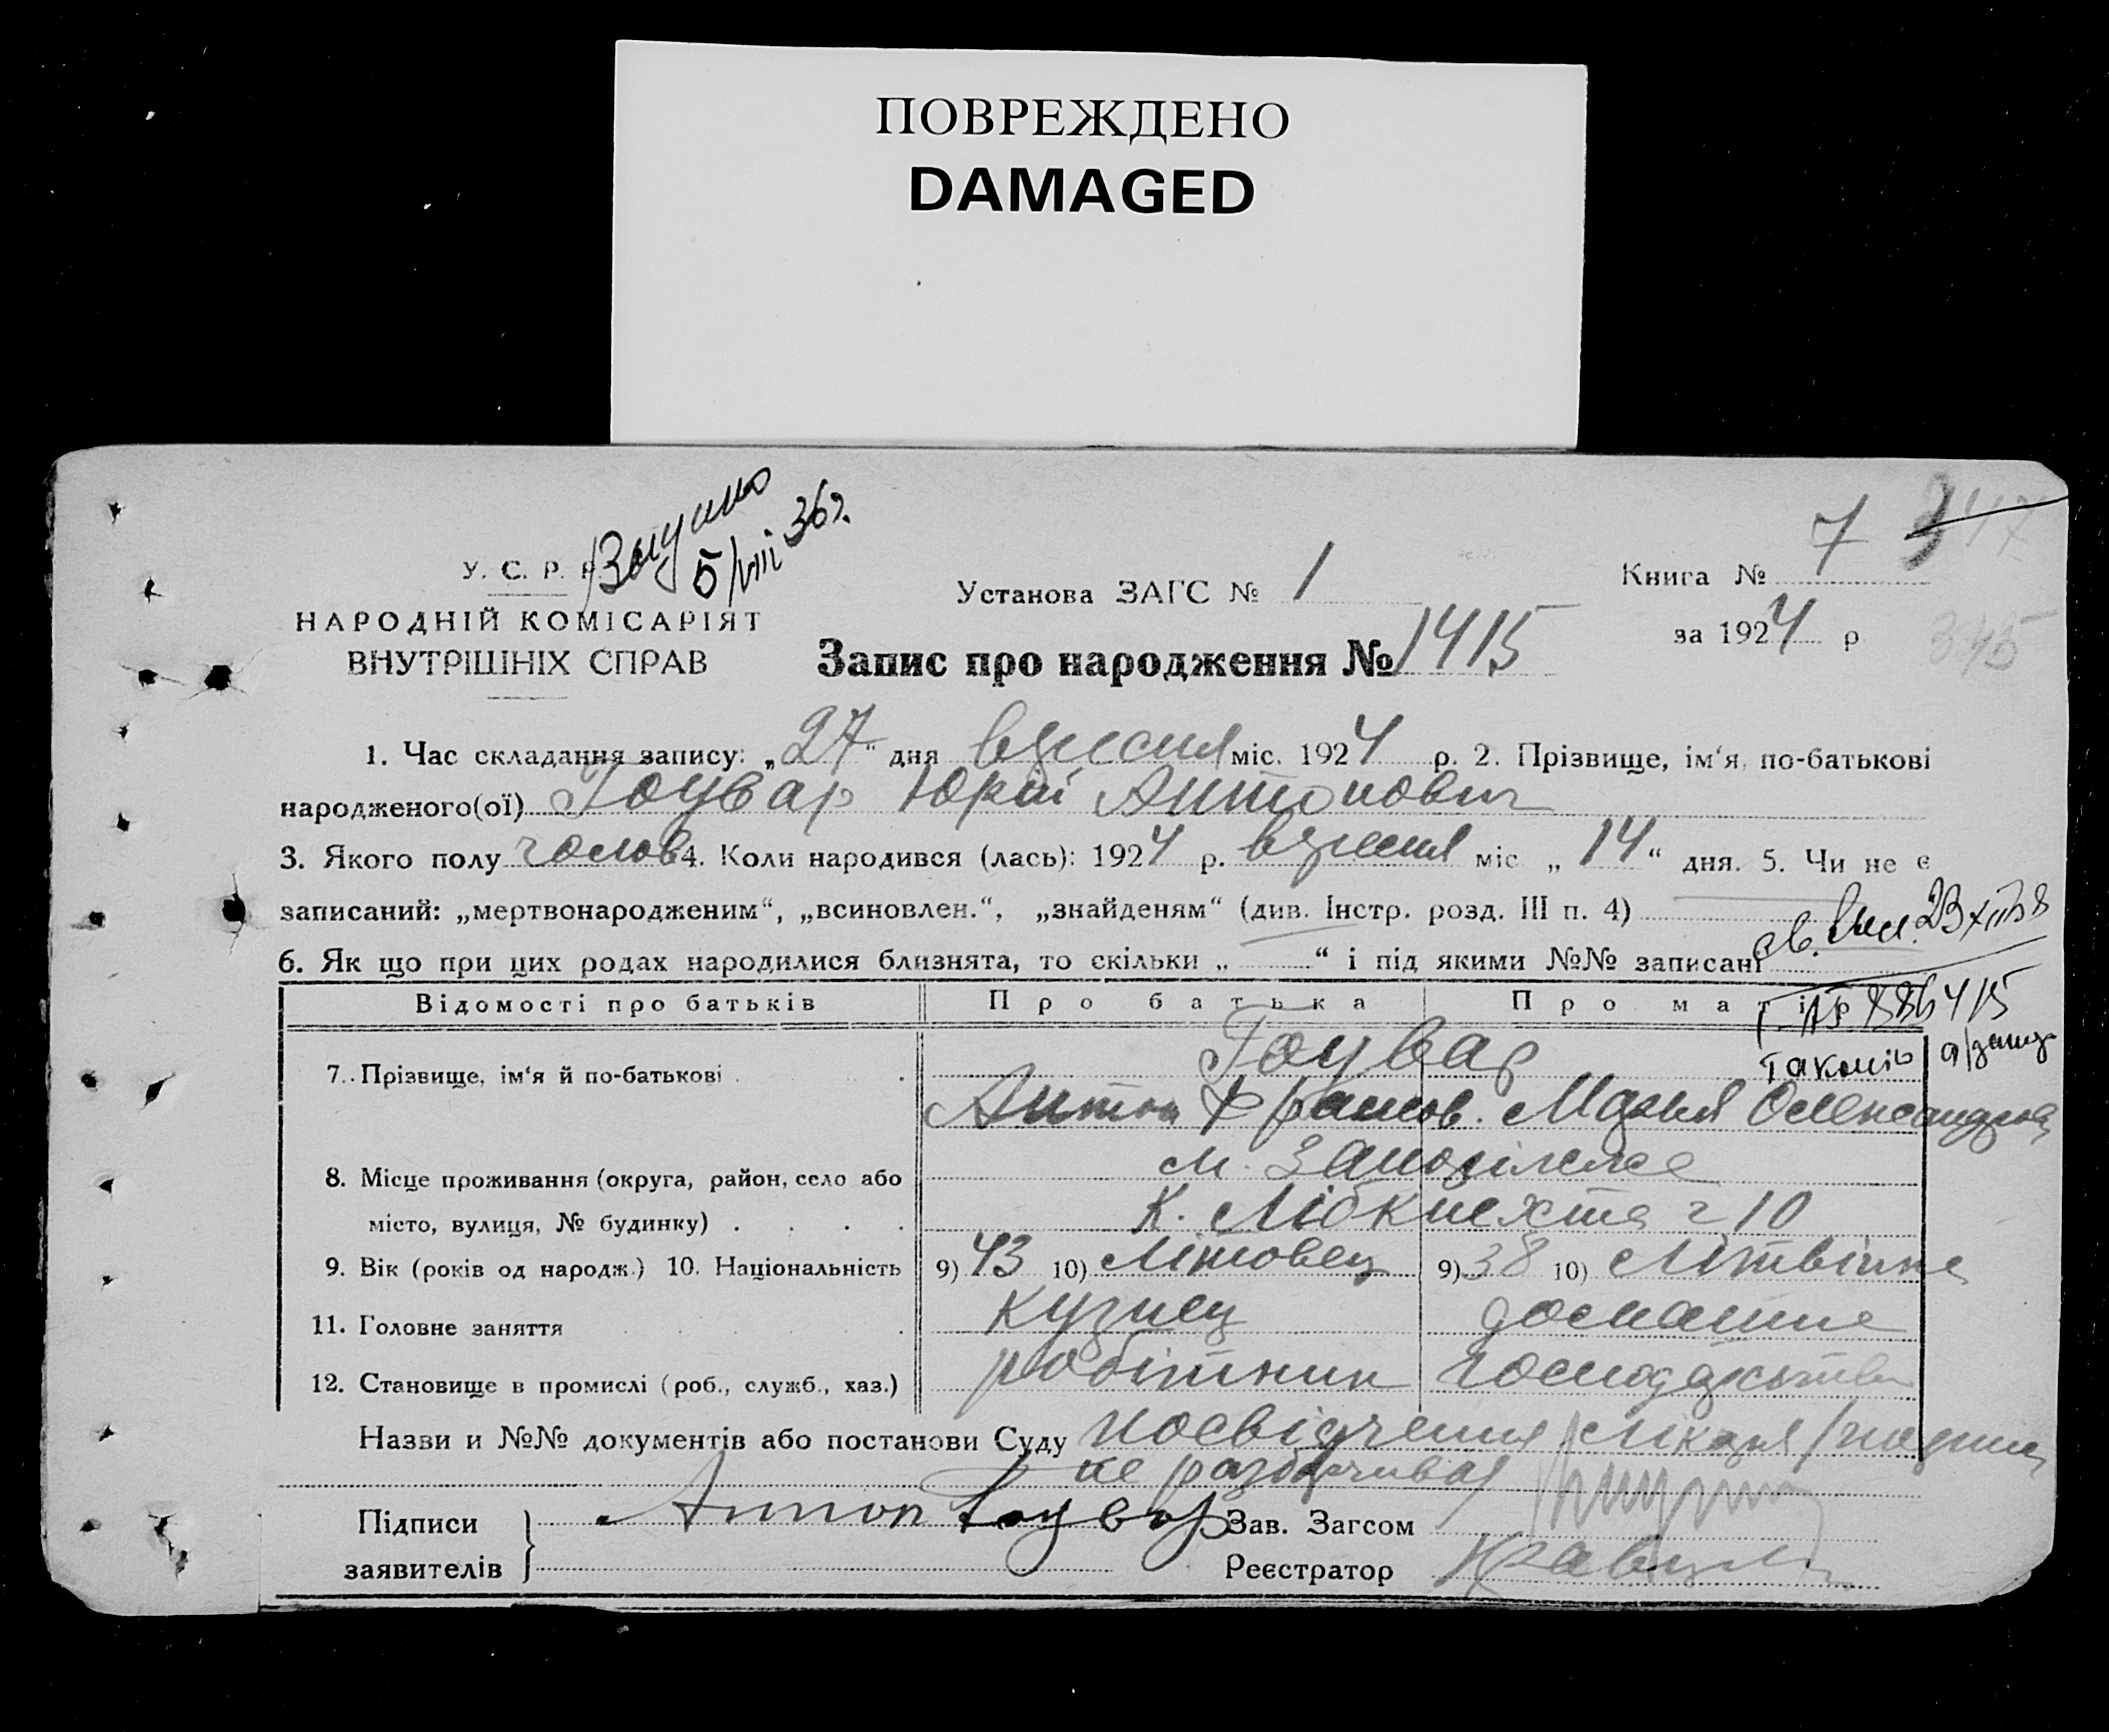 ПОВРЕЖДЕНО
DAMAGED
7
У. С. Р. Р.
5/VIII 36г.
Установа ЗАГС № 1
Книга №
НАРОДНІЙ КОМІСАРІЯТ
за 1924 р
345
ВНУТРІШНІХ СПРАВ
Запис про народження № 1415
1. Час складання запису: „27“ дня вересня міс. 1924 р. 2. Прізвище, ім‘я, по-батькові
народженого(ої) Гоувар Юрій Антонович
3. Якого полу чолов 4. Коли народився (лась): 1924 р. вересня міс „14“ дня. 5. Чи не є
записаний: „мертвонародженим“, „всиновлен.“, „знайденям“ (див. Інстр. розд. III п. 4)
6. Як що при цих родах народилися близнята, то скільки „ “ і під якими №№ записані
Відомості про батьків Про батька Про матір
7. Прізвище, ім‘я й по-батькові Гоувар
Антон Франсов. Марія Олександров
8. Місце проживання (округа, район, село або м. Запоріжже
місто, вулиця, № будинку) К. Лібкнехта 10
9. Вік (років од народж.) 10. Національність 9) 43 10) Літовец 9) 38 10) Літвінка
11. Головне заняття кузнец домашнє
12. Становище в промислі (роб., служб., хаз.) робітник господарство
Назви и №№ документів або постанови Суду посвідчення лікаря /подпис
не разборчивая
Підписи Антон Гоувар Зав. Загсом
заявителів Реєстратор